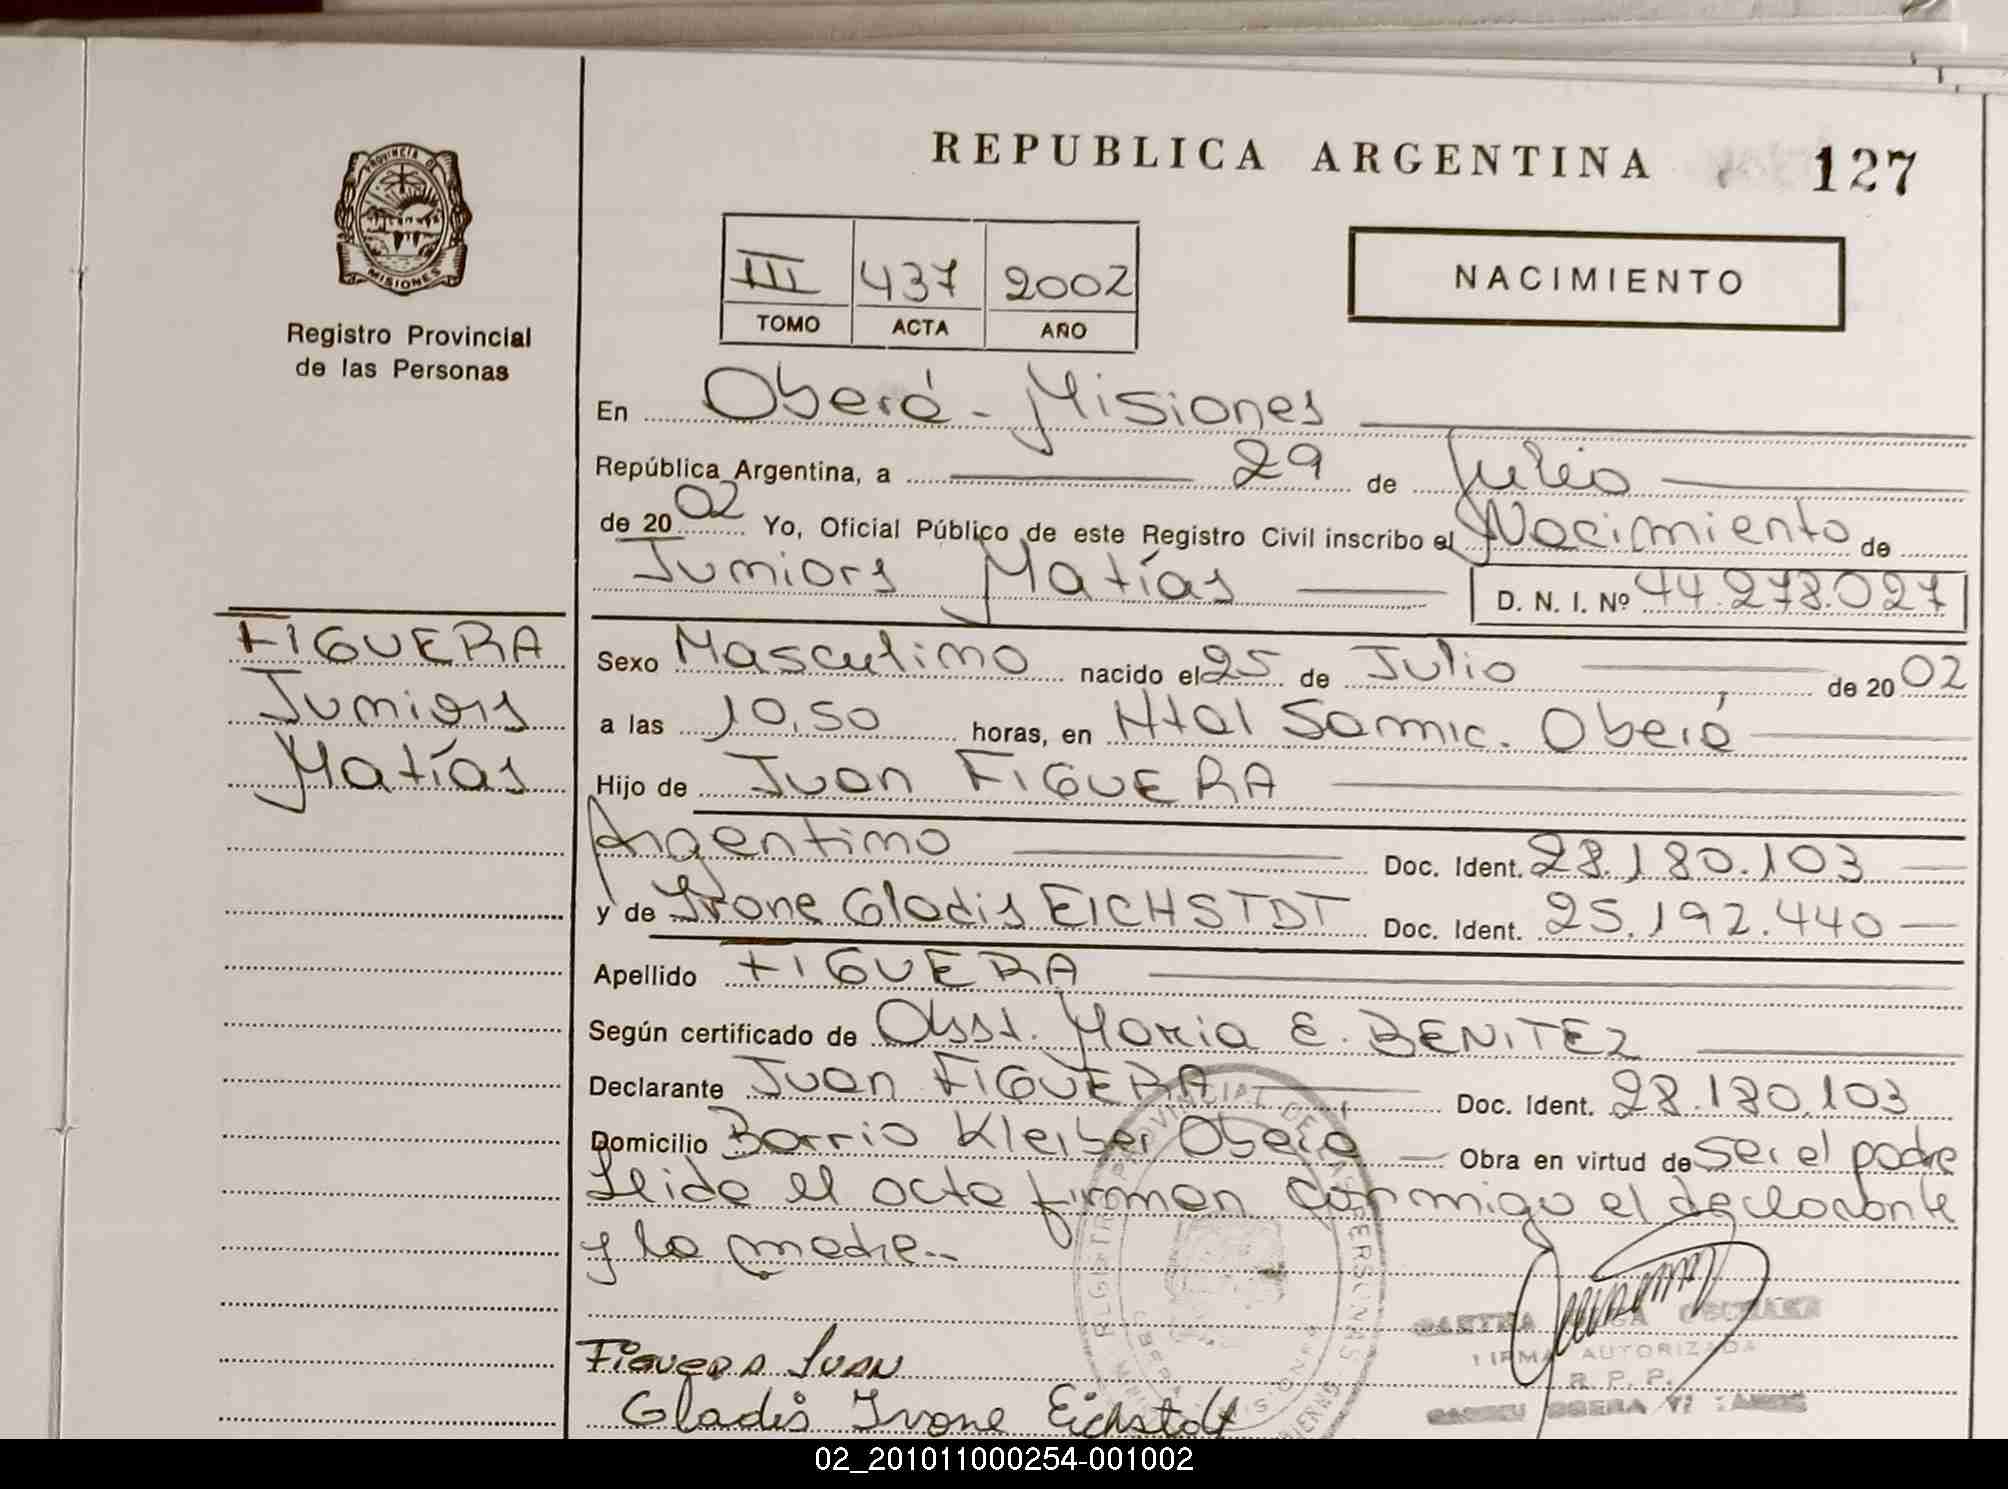 REPUBLICA ARGENTINA 127
PROVINCIA DE MISIONES
Registro Provincial
de las Personas
III 437 2002
TOMO ACTA AÑO
NACIMIENTO
En Oberá - Misiones
República Argentina, a 29 de Julio
de 2002 Yo, Oficial Público de este Registro Civil inscribo el Nacimiento de
Juniors Matías D. N. I. Nº 44.278.027
FIGUERA
Juniors
Matías
Sexo Masculino nacido el 25 de Julio de 2002
a las 10,50 horas, en Htal Samic. Oberá
Hijo de Juan FIGUERA
Argentino Doc. Ident. 28.180.103
y de Ivone Gladis EICHSTDT Doc. Ident. 25.192.440
Apellido FIGUERA
Según certificado de Obst. María E. BENITEZ
Declarante Juan FIGUERA Doc. Ident. 28.180.103
Domicilio Barrio Kleiber Oberá Obra en virtud de ser el padre
Leída el acta firman conmigo el declarante
y la madre.-
FIGUERA JUAN
FIRMA AUTORIZADA
R. P. P.
Gladis Ivone Eichstdt
02_201011000254-001002